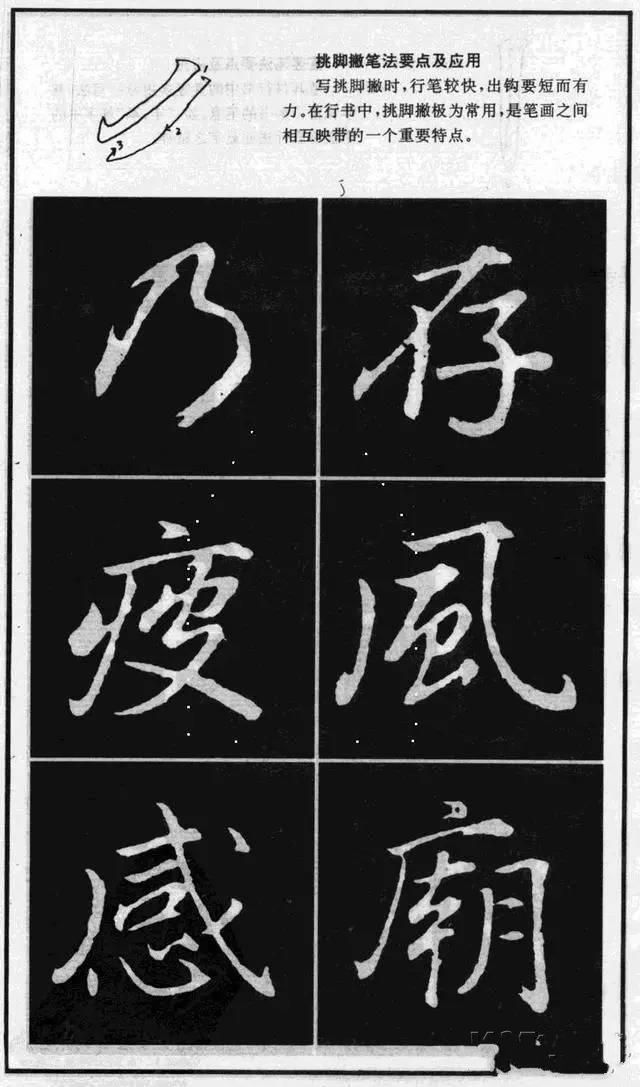 挑脚撇笔法要点及应用
写挑脚撇时，行笔较快，出钩要短而有
力。在行书中，挑脚撇极为常用，是笔画之间
相互映带的一个重要特点。
1
2
3
存
乃
風
疲
廟
感